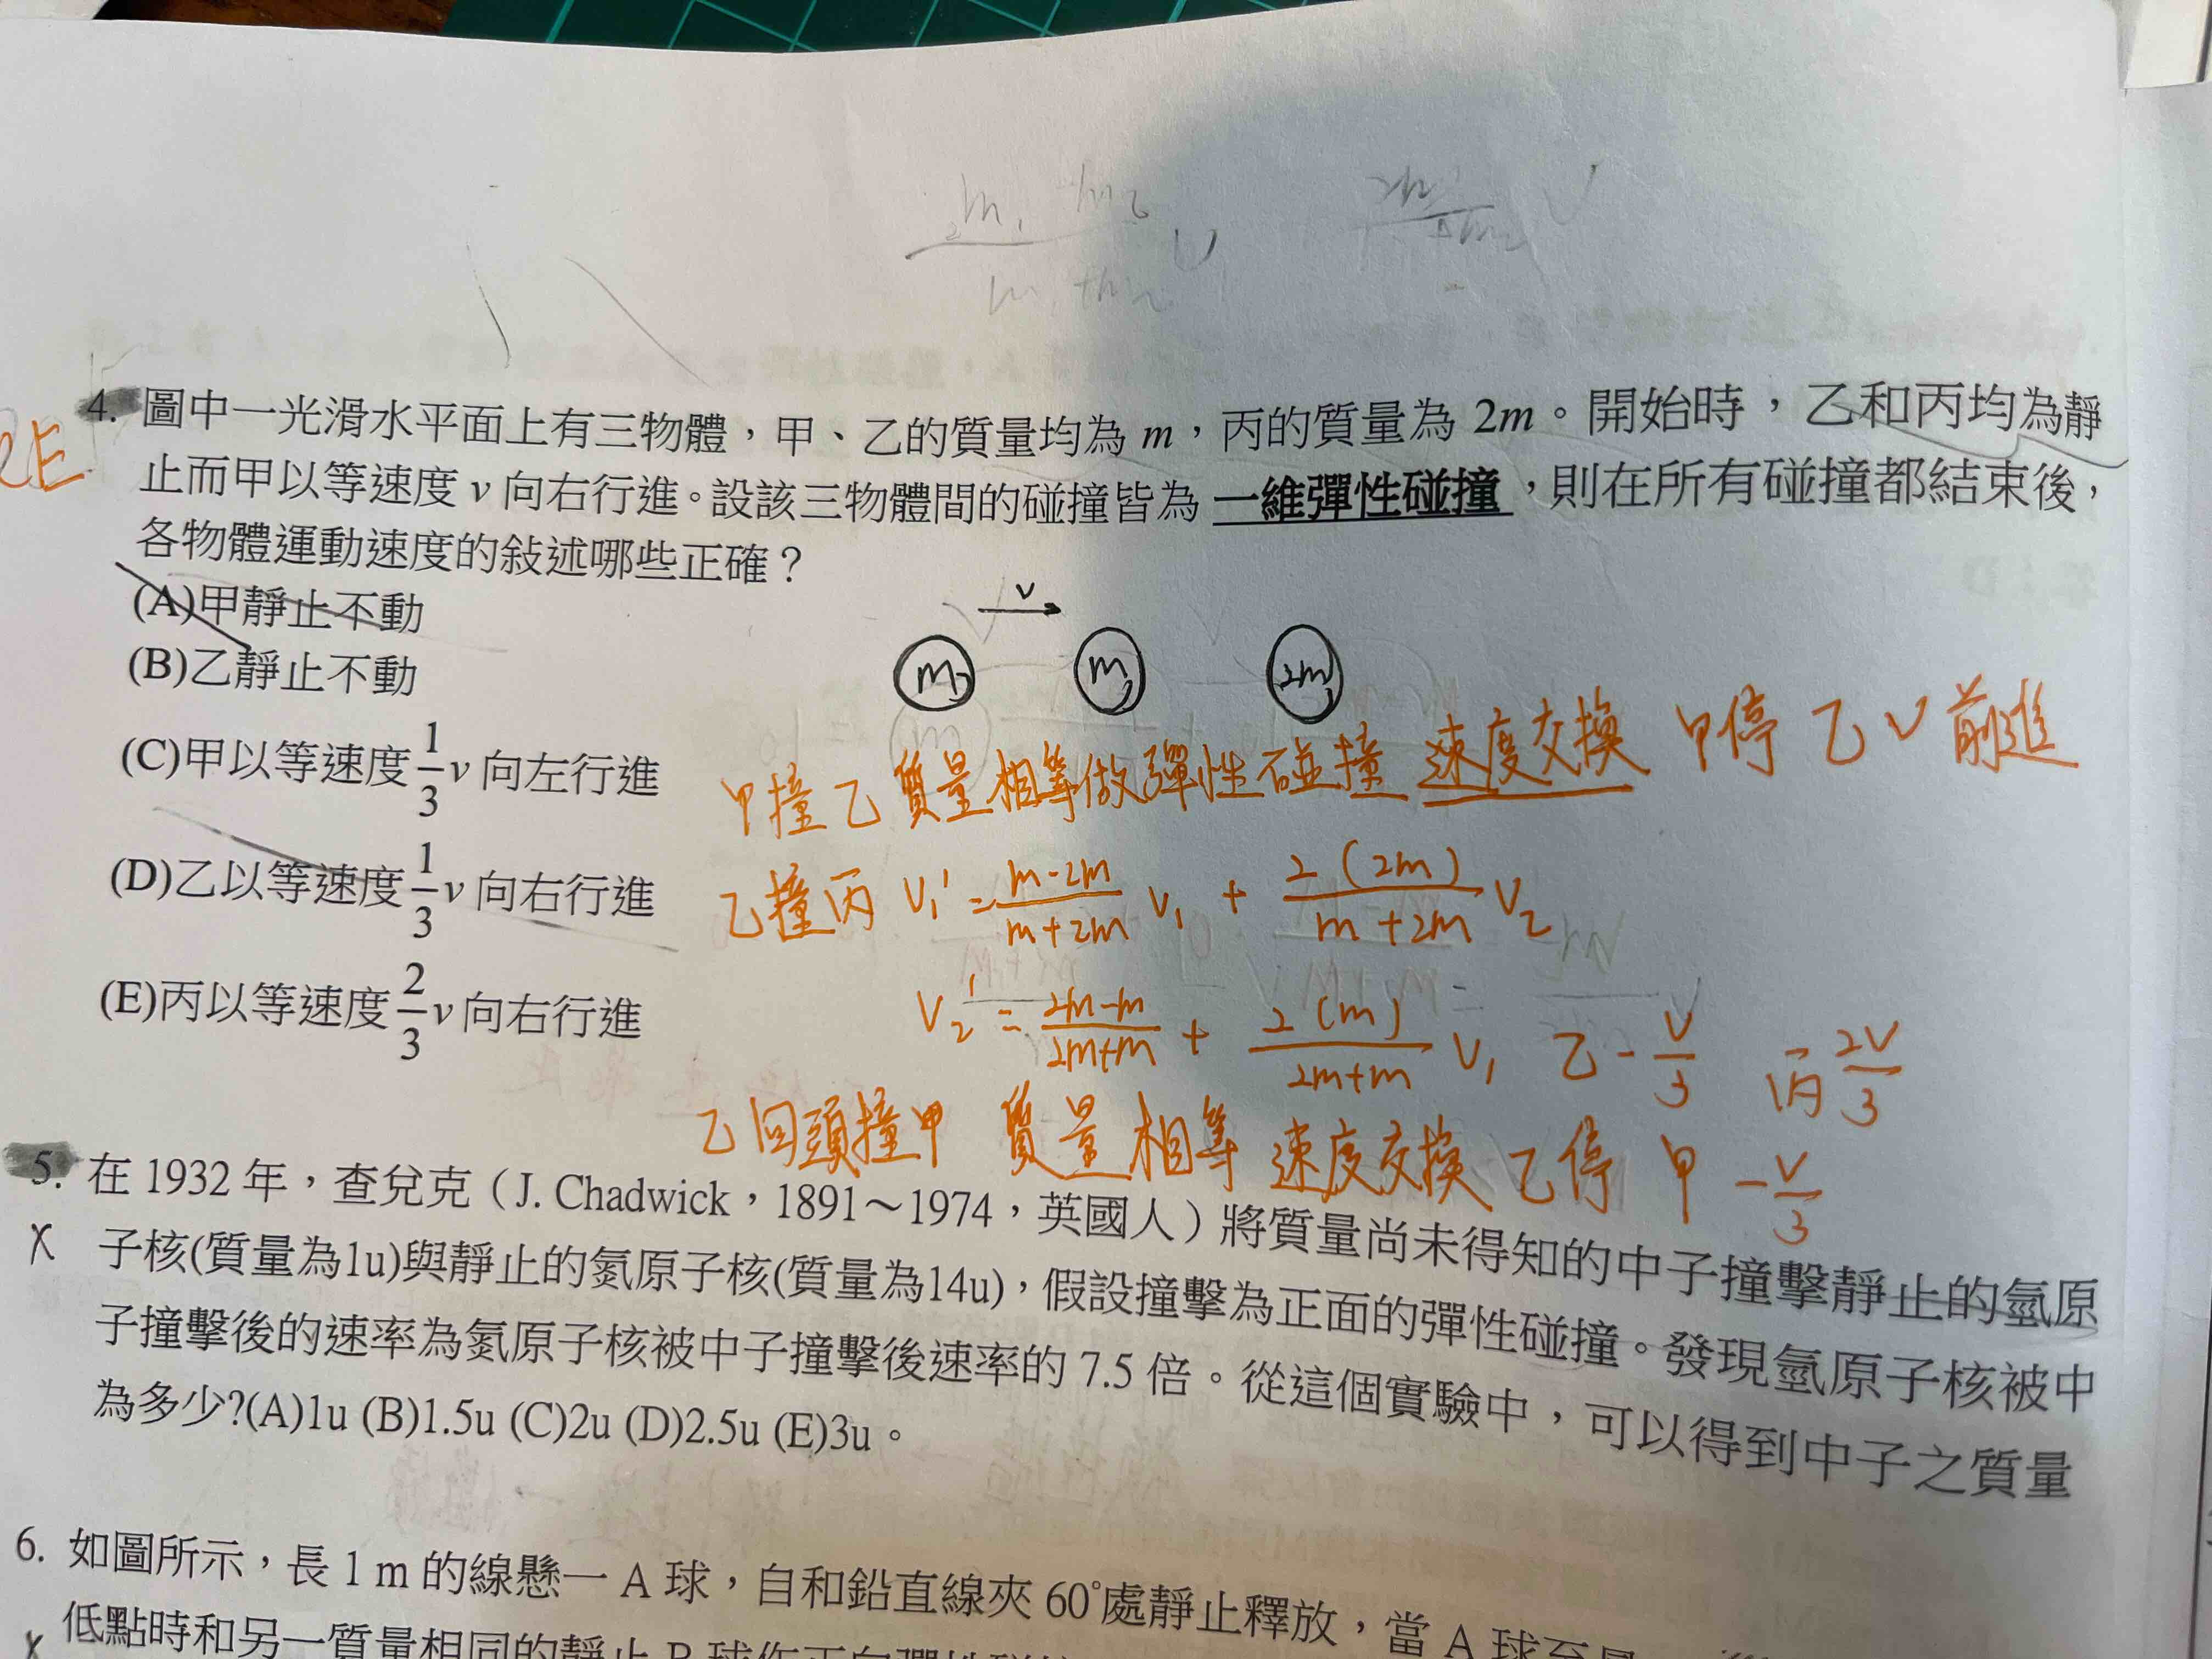 4. 圖中一光滑水平面上有三物體，甲、乙的質量均為 m，丙的質量為 2m。開始時，乙和丙均為靜
止而甲以等速度 v 向右行進。設該三物體間的碰撞皆為 一維彈性碰撞，則在所有碰撞都結束後，
各物體運動速度的敍述哪些正確？
(A)甲靜止不動
(B)乙靜止不動
(C)甲以等速度 1/3 v 向左行進
(D)乙以等速度 1/3 v 向右行進
(E)丙以等速度 2/3 v 向右行進
v
m m 2m
甲撞乙 質量相等做彈性碰撞 速度交換 甲停 乙 V 前進
乙撞丙 V₁' = (m-2m)/(m+2m) V₁ + 2(2m)/(m+2m) V₂
V₂' = (2m-m)/(2m+m) + 2(m)/(2m+m) V₁ 乙 -V/3 丙 2V/3
乙回頭撞甲 質量相等 速度交換 乙停 甲 -V/3
5. 在 1932 年，查兌克（J. Chadwick，1891～1974，英國人）將質量尚未得知的中子撞擊靜止的氫原
X 子核(質量為1u)與靜止的氮原子核(質量為14u)，假設撞擊為正面的彈性碰撞。發現氫原子核被中
子撞擊後的速率為氮原子核被中子撞擊後速率的 7.5 倍。從這個實驗中，可以得到中子之質量
為多少?(A)1u (B)1.5u (C)2u (D)2.5u (E)3u。
6. 如圖所示，長 1 m 的線懸一 A 球，自和鉛直線夾 60°處靜止釋放，當 A 球至最
X 低點時和另一質量相同的靜止 B 球作正向彈性碰撞